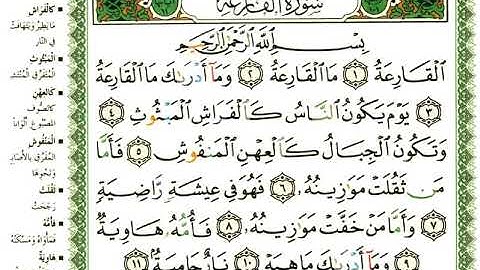 سُورَةُ القَارِعَة
بِسْمِ اللَّهِ الرَّحْمَٰنِ الرَّحِيمِ
ٱلْقَارِعَةُ ١ مَا ٱلْقَارِعَةُ ٢ وَمَآ أَدْرَىٰكَ مَا ٱلْقَارِعَةُ
٣ يَوْمَ يَكُونُ ٱلنَّاسُ كَٱلْفَرَاشِ ٱلْمَبْثُوثِ ٤
وَتَكُونُ ٱلْجِبَالُ كَٱلْعِهْنِ ٱلْمَنفُوشِ ٥ فَأَمَّا
مَن ثَقُلَتْ مَوَٰزِينُهُۥ ٦ فَهُوَ فِى عِيشَةٍ رَّاضِيَةٍ
٧ وَأَمَّا مَنْ خَفَّتْ مَوَٰزِينُهُۥ ٨ فَأُمُّهُۥ هَاوِيَةٌ
٩ وَمَآ أَدْرَىٰكَ مَا هِيَهْ ١٠ نَارٌ حَامِيَةٌۢ ١١
كَالْفَرَاشِ
مَا يَطِيرُ وَيَتَهَافَتُ
فِي النَّارِ
الْمَبْثُوثِ
الْمُتَفَرِّقِ الْمُنْتَشِرِ
كَالْعِهْنِ
كَالصُّوفِ
الْمَصْبُوغِ أَلْوَانًا
الْمَنْفُوشِ
الْمُفَرَّقِ بِالأَصَابِعِ
وَنَحْوِهَا
ثَقُلَتْ
رَجَحَتْ
فَأُمُّهُ
فَمَأْوَاهُ وَمَسْكَنُهُ
هَاوِيَةٌ